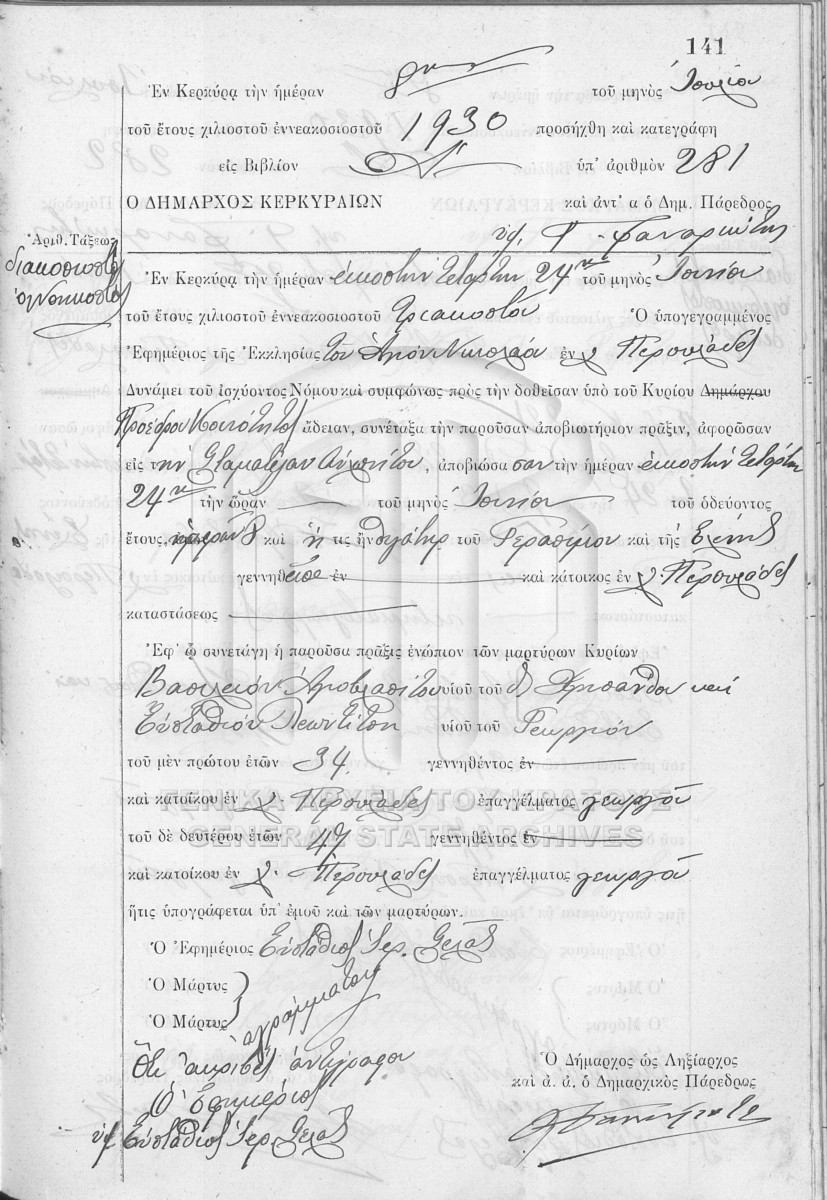 141
Ἐν Κερκύρᾳ τὴν ἡμέραν 8ην τοῦ μηνὸς Ἰουλίου
τοῦ ἔτους χιλιοστοῦ ἐννεακοσιοστοῦ 1930 προσήχθη καὶ κατεγράφη
εἰς Βιβλίον Α′ ὑπ' ἀριθμὸν 281
Ο ΔΗΜΑΡΧΟΣ ΚΕΡΚΥΡΑΙΩΝ καὶ ἀντ' α ὁ Δημ. Πάρεδρος
Ἀριθ. Τάξεως
διακοσιοστὸς
ὀγδοηκοστὸς
Ἐν Κερκύρᾳ τὴν ἡμέραν εἰκοστὴν τετάρτην 24ην τοῦ μηνὸς Ἰουνίου
τοῦ ἔτους χιλιοστοῦ ἐννεακοσιοστοῦ τριακοστοῦ Ὁ ὑπογεγραμμένος
Ἐφημέριος τῆς Ἐκκλησίας τοῦ Ἁγίου Νικολάου ἐν χ. Περουλάδες
Δυνάμει τοῦ ἰσχύοντος Νόμου καὶ συμφώνως πρὸς τὴν δοθεῖσαν ὑπὸ τοῦ Κυρίου Δημάρχου
Προέδρου Κοινότητος ἄδειαν, συνέταξα τὴν παροῦσαν ἀποβιωτήριον πρᾶξιν, ἀφορῶσαν
εἰς τὴν Σταματέλαν, ἀποβιώσασαν τὴν ἡμέραν εἰκοστὴν τετάρτην
24ην τὴν ὥραν τοῦ μηνὸς Ἰουνίου τοῦ ὁδεύοντος
ἔτους, καὶ ἥτις ἦν θυγάτηρ τοῦ Γερασίμου καὶ τῆς Ἑλένης
γεννηθεῖσα ἐν καὶ κάτοικος ἐν χ. Περουλάδες
καταστάσεως
Ἐφ' ᾧ συνετάγη ἡ παροῦσα πρᾶξις ἐνώπιον τῶν μαρτύρων Κυρίων
Βασιλείου υἱοῦ τοῦ καὶ
Εὐσταθίου υἱοῦ τοῦ Γεωργίου
τοῦ μὲν πρώτου ἐτῶν 34 γεννηθέντος ἐν
καὶ κατοίκου ἐν χ. Περουλάδες ἐπαγγέλματος γεωργοῦ
ΓΕΝΙΚΑ ΑΡΧΕΙΑ ΤΟΥ ΚΡΑΤΟΥΣ
τοῦ δὲ δευτέρου ἐτῶν 47 γεννηθέντος ἐν
GENERAL STATE ARCHIVES
καὶ κατοίκου ἐν χ. Περουλάδες ἐπαγγέλματος γεωργοῦ
ἥτις ὑπογράφεται ὑπ' ἐμοῦ καὶ τῶν μαρτύρων.
Ὁ Ἐφημέριος Εὐστάθιος Ἱερ.
Ὁ Μάρτυς
Ὁ Μάρτυς ἀγράμματοι
Ὅτι ἀκριβὲς ἀντίγραφον
Ὁ Ἐφημέριος
ὑπ. Εὐστάθιος Ἱερ.
Ὁ Δήμαρχος ὡς Ληξίαρχος
καὶ ἀ. ἀ. ὁ Δημαρχικὸς Πάρεδρος